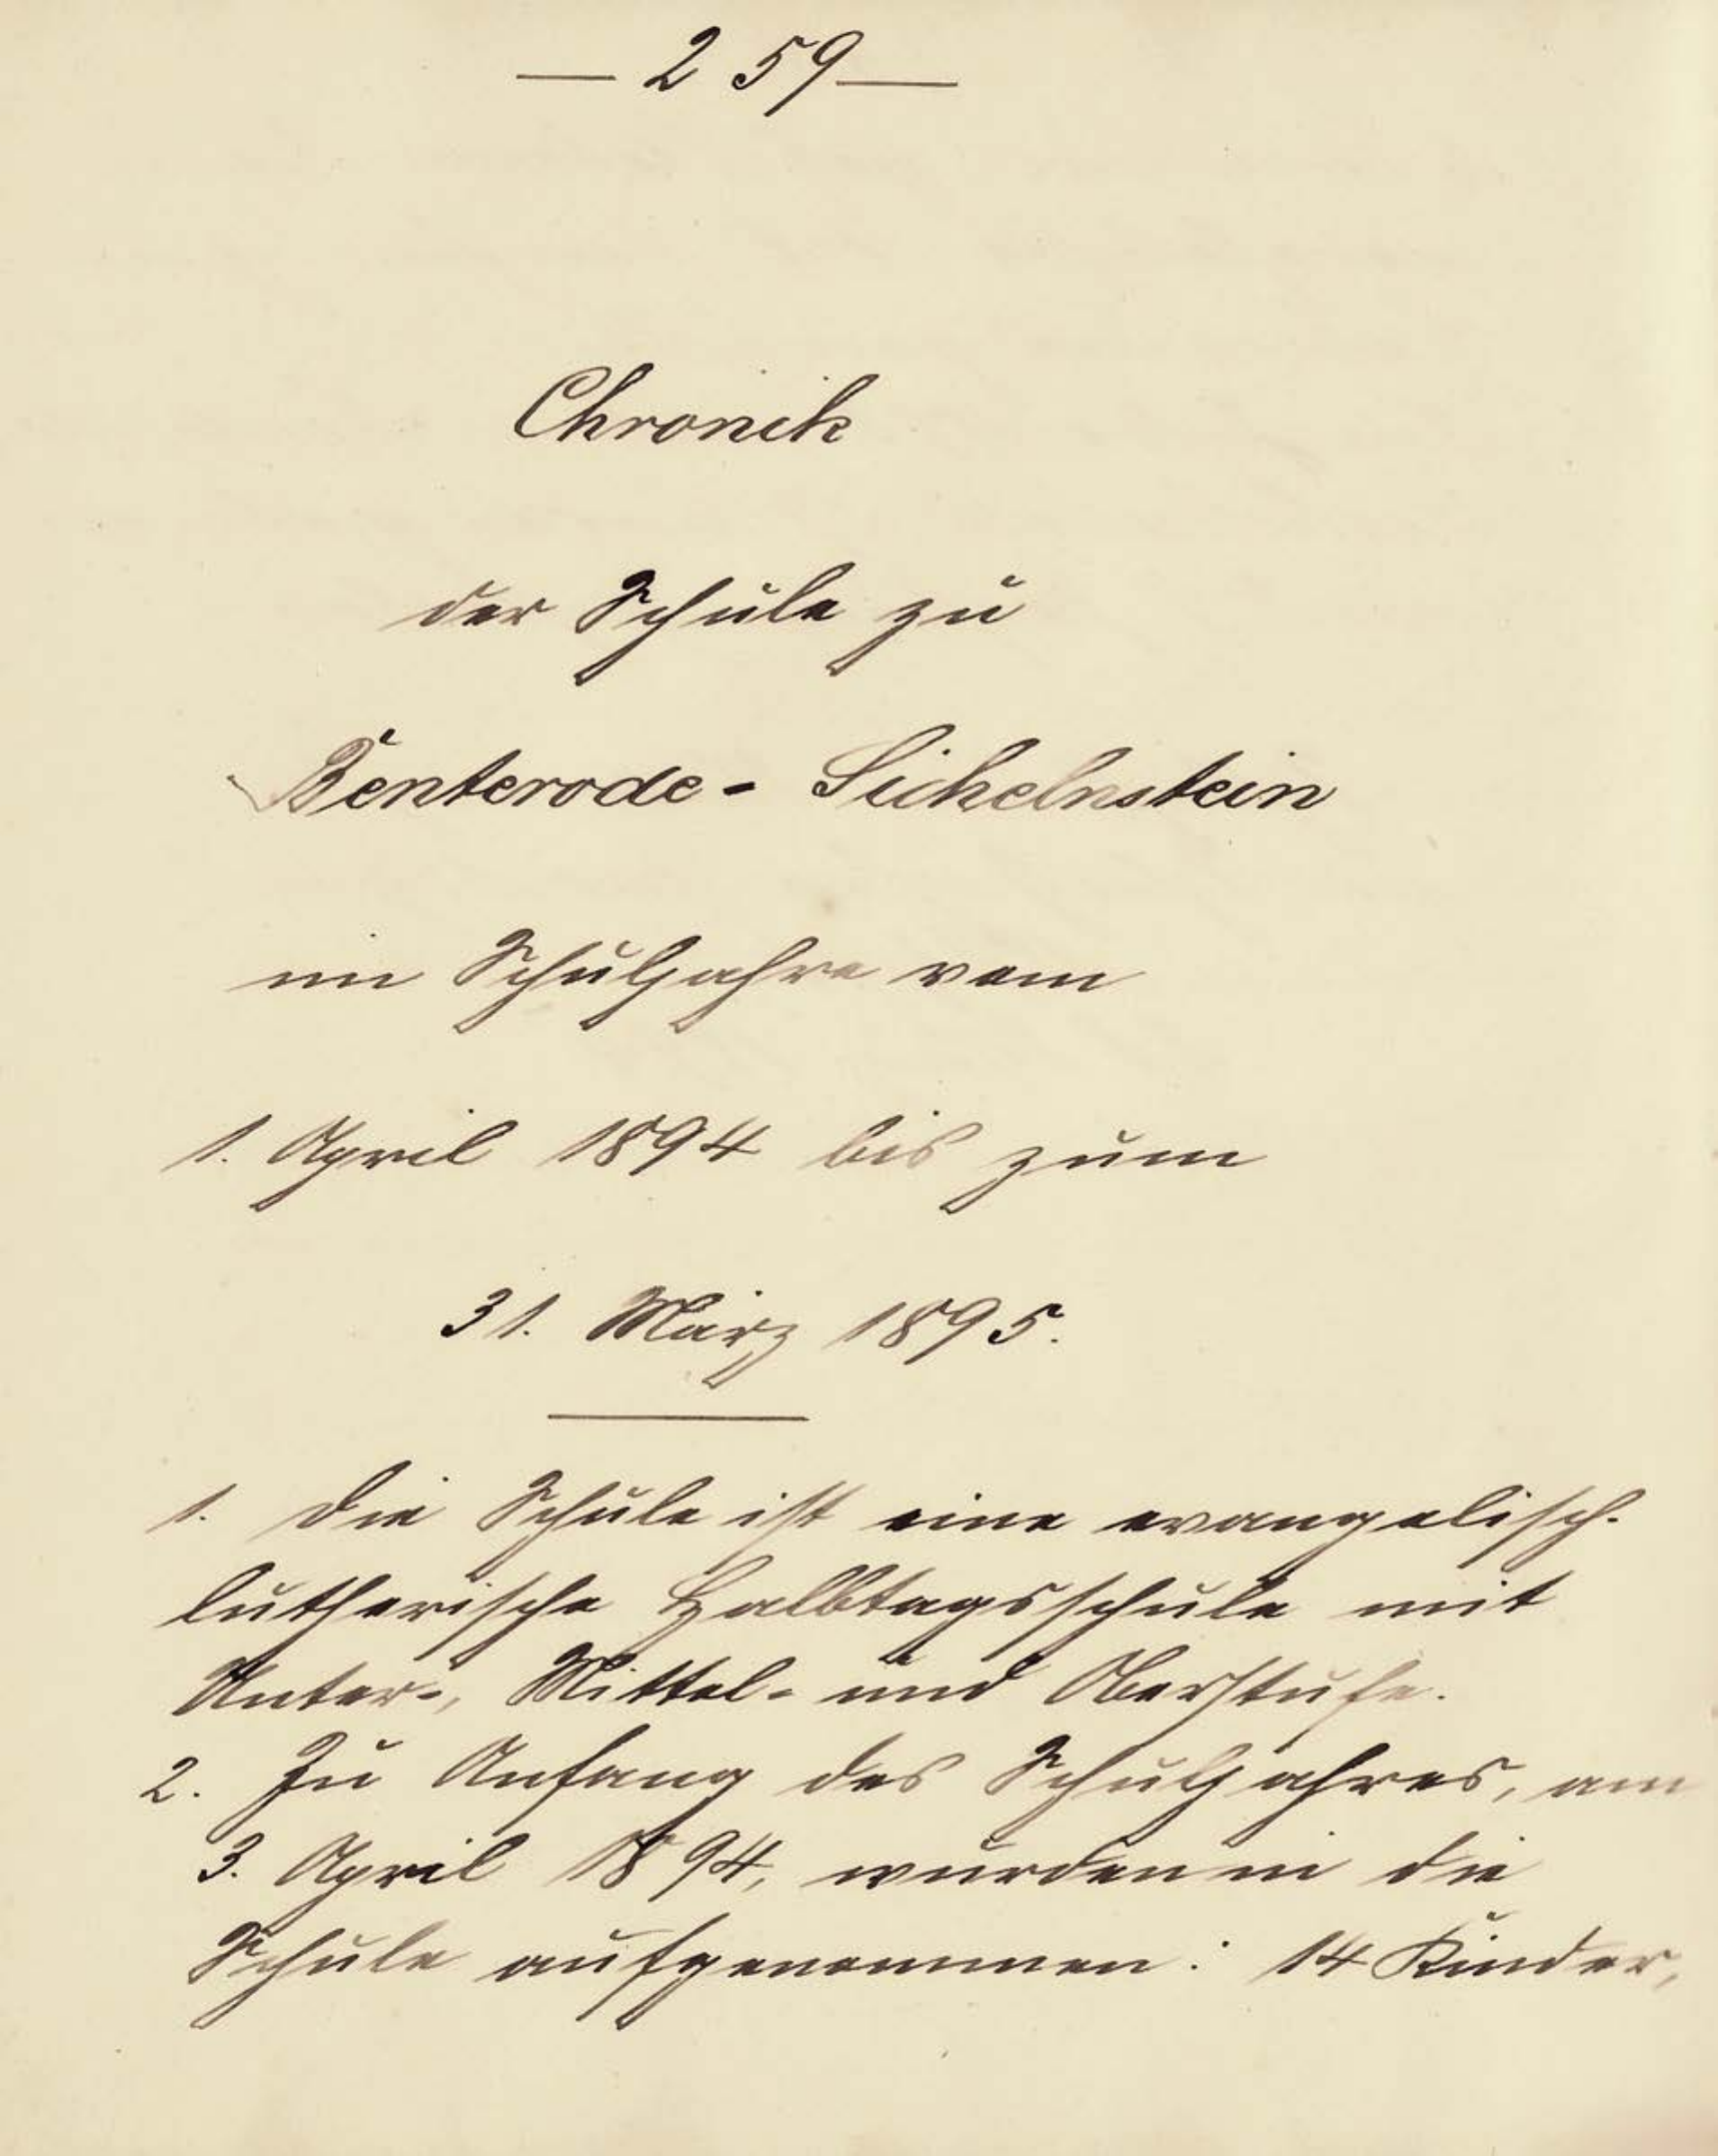 — 259 —
Chronik
der Schule zu
Benterode - Sichelnstein
im Schuljahre vom
1. April 1894 bis zum
31. März 1895.
1. Die Schule ist eine evangelisch-
lutherische Halbtagsschule mit
Unter-, Mittel- und Oberstufe.
2. Zu Anfang des Schuljahres, am
3. April 1894, wurden in die
Schule aufgenommen: 14 Kinder,